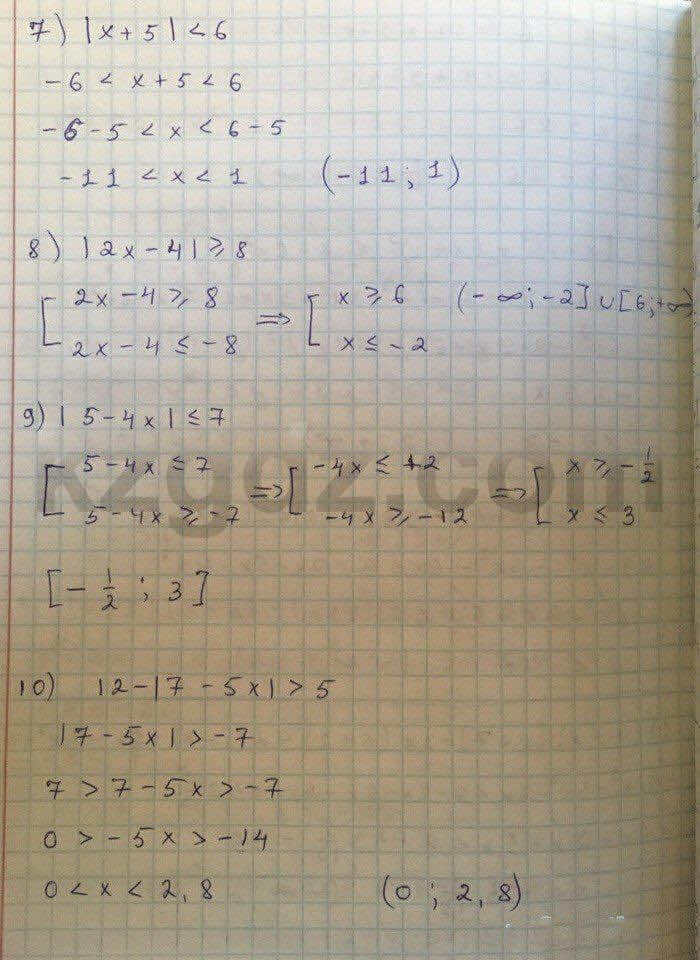 7) |x+5|<6
-6 < x+5 < 6
-6-5 < x < 6-5
-11 < x < 1 (-11; 1)
8) |2x-4|⩾8
[ 2x-4⩾8 => [ x⩾6 (-∞;-2]∪[6;+∞)
2x-4≤-8 x≤-2
9) |5-4x|≤7
[ 5-4x≤7 => [ -4x≤+2 => [ x⩾-1/2
5-4x⩾-7 -4x⩾-12 x≤3
kzgdz.com
[-1/2; 3]
10) 12-|7-5x|>5
|7-5x|>-7
7>7-5x>-7
0>-5x>-14
0<x<2,8 (0; 2,8)